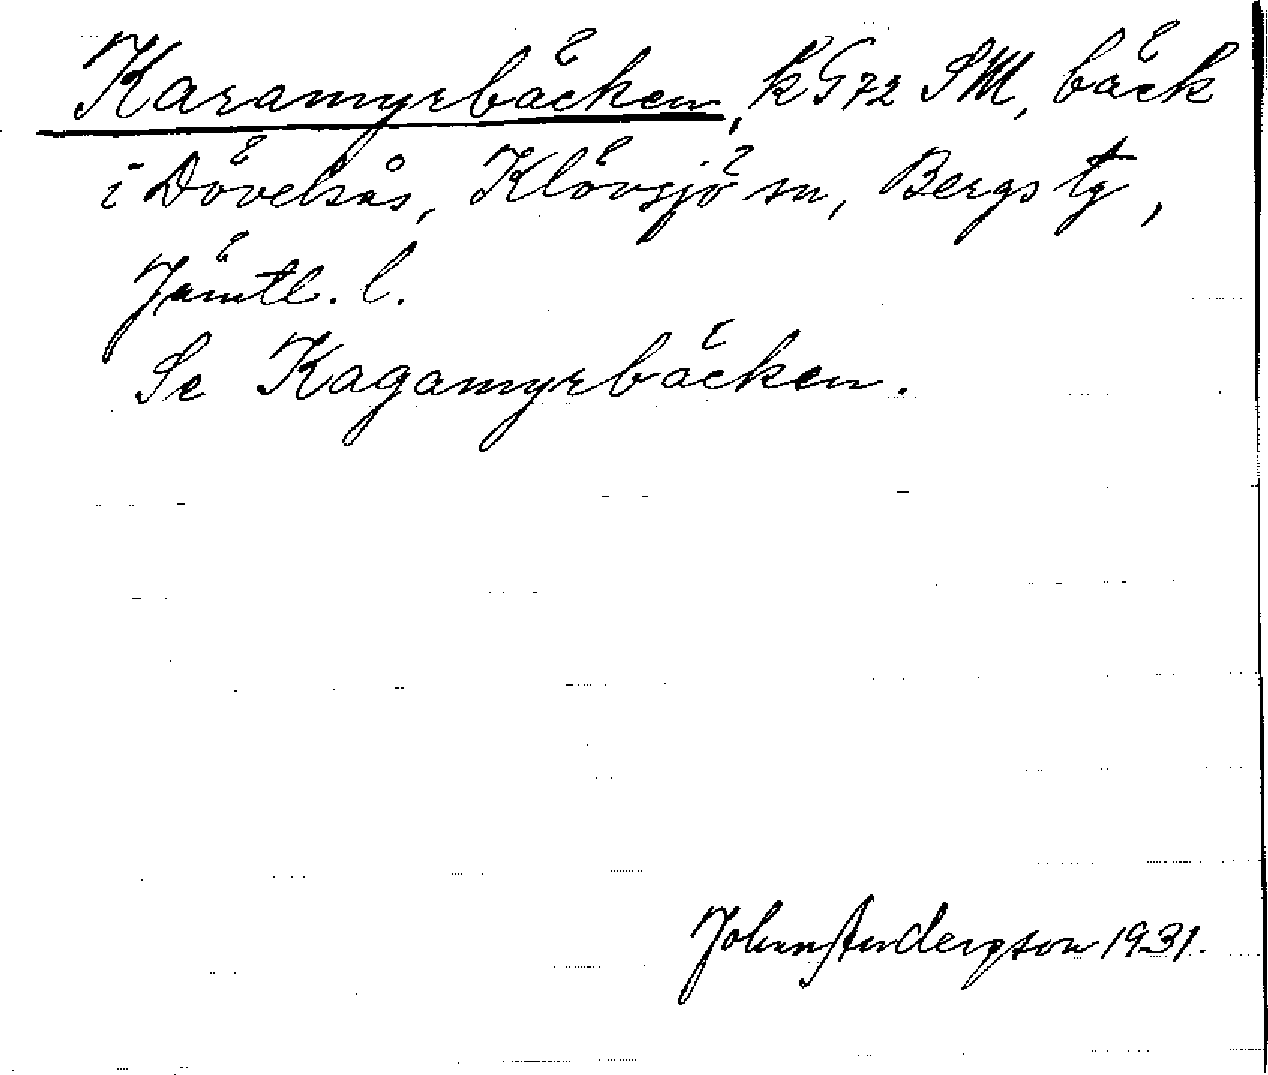 Karamyrbäcken, kG72 SM, bäck
i Dövelsås, Klövsjö sn, Bergs tg,
Jämtl. l.
Se Kagamyrbäcken.
John Andersson 1931.